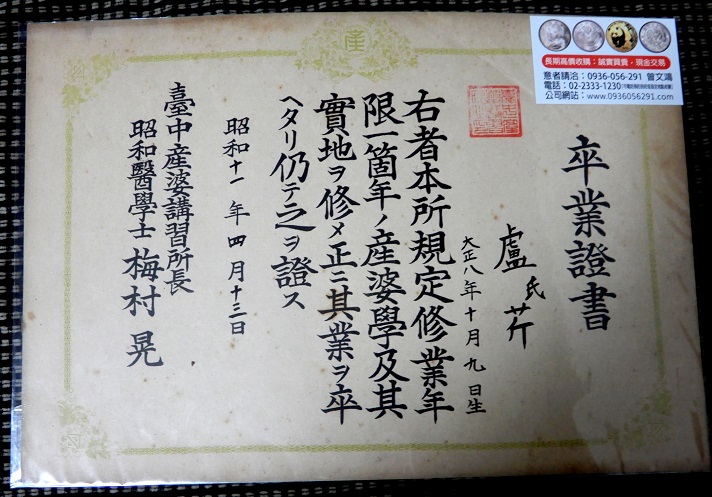 產
長期高價收購：誠實買賣，現金交易
意者請洽：0936-056-291 曾文鴻
電話：02-2333-1230
公司網站：www.0936056291.com
卒業證書
盧氏芹
大正八年十月九日生
右者本所規定修業年
限一箇年ノ產婆學及其
實地ヲ修メ正ニ其業ヲ卒
ヘタリ仍テ之ヲ證ス
昭和十一年四月十三日
臺中產婆講習所長
昭和醫學士 梅村晃